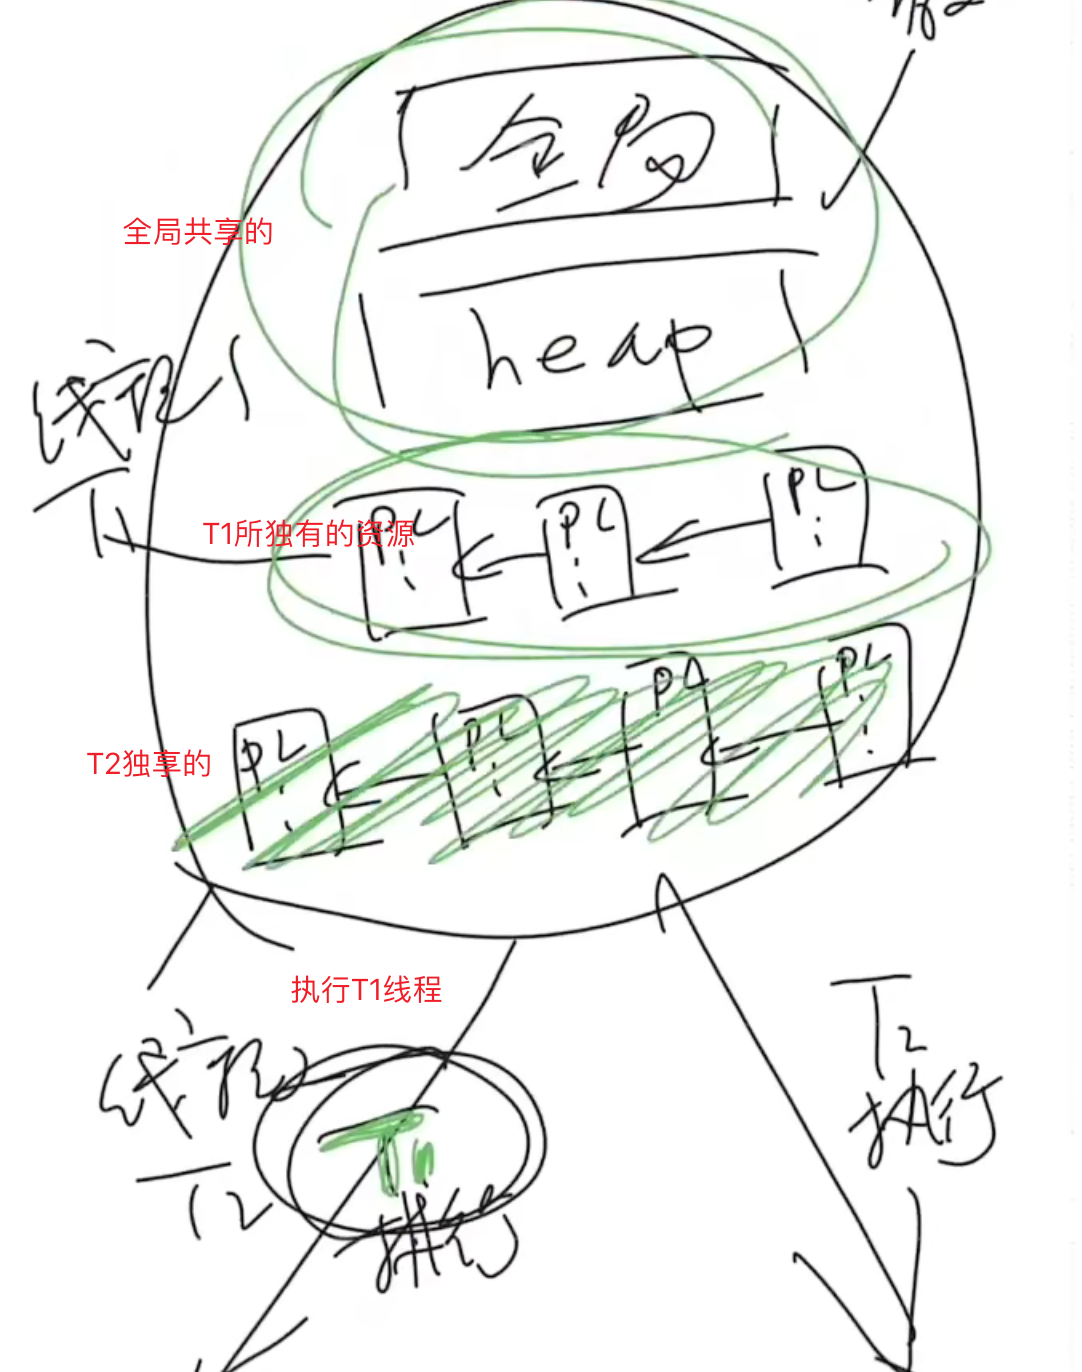 全局
全局共享的
heap
线程1
T1
T1所独有的资源
PL
PL
PL
T2独享的
PL
PL
PL
PL
执行T1线程
线程2
T2
T1
执行
T2
执行